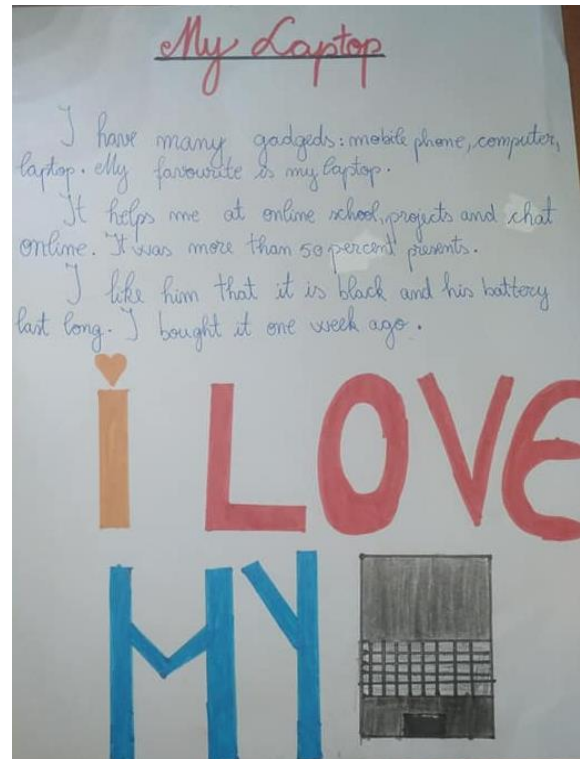 My Laptop
I have many gadgeds: mobile phone, computer,
laptop. My favourite is my laptop.
It helps me at online school, projects and chat
online. It was more than 50 percent presents.
I like him that it is black and his battery
last long. I bought it one week ago.
i LOVE
MY